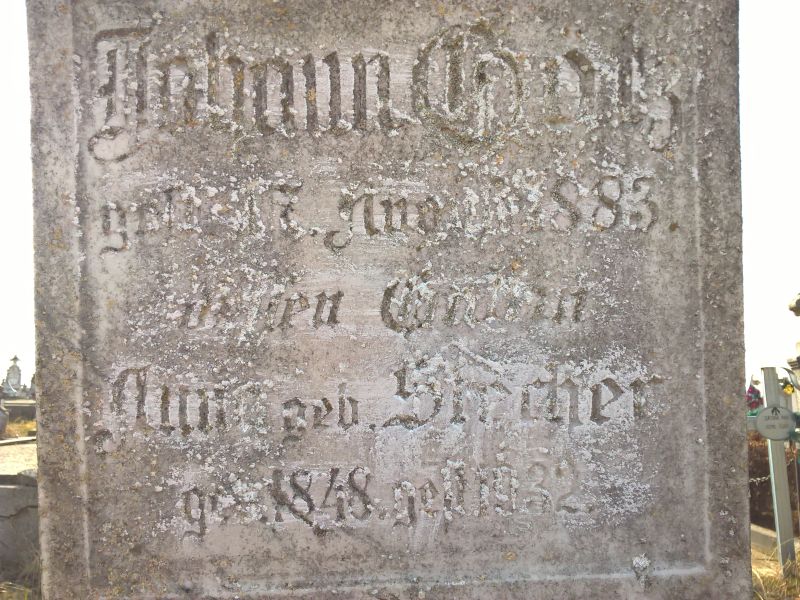 Johann
gest. 17. August 1883.
dessen Gattin
Anna geb. Strecher
geb. 1848. gest. 1932.